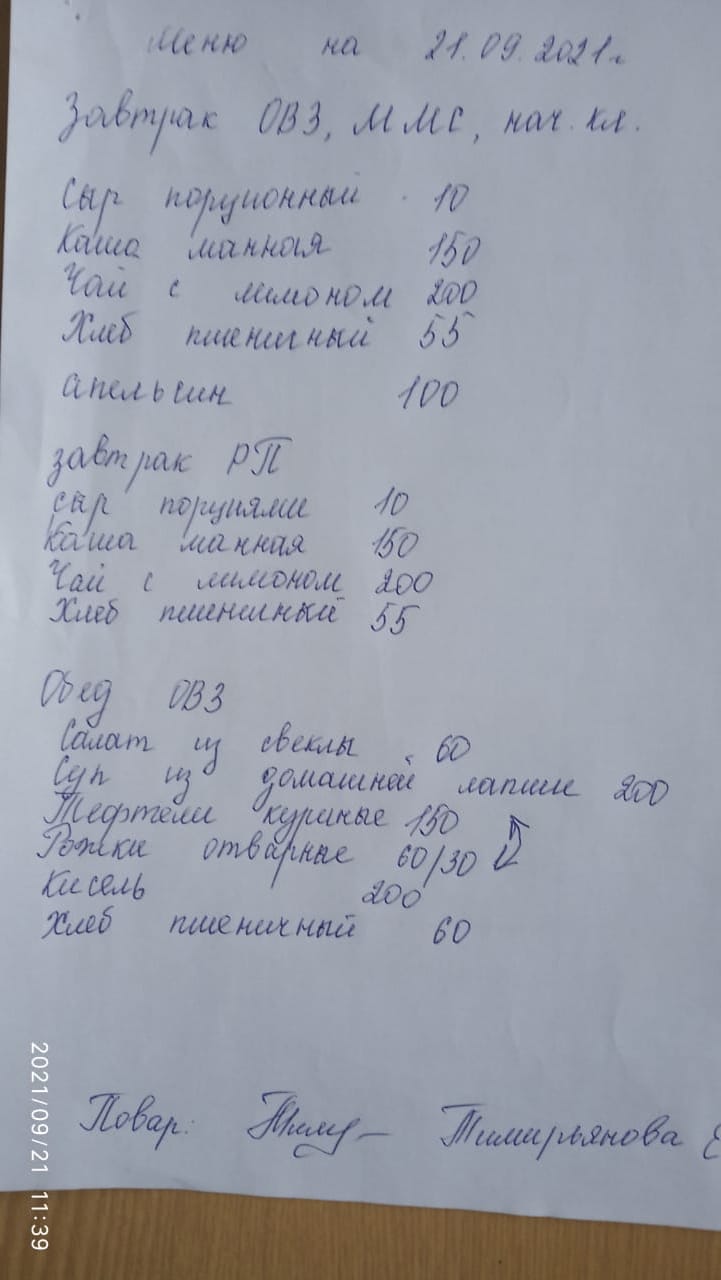 Меню на 21.09.2021г
Завтрак ОВЗ, ММС, нач. кл.
Сыр порционный 10
Каша манная 150
Чай с лимоном 200
Хлеб пшеничный 55
апельсин 100
завтрак РП
сыр порциями 10
каша манная 150
Чай с лимоном 200
Хлеб пшеничный 55
Обед ОВЗ
Салат из свеклы 60
Суп из домашней лапши 200
Тефтели куриные 150
Рожки отварные 60/30
Кисель 200
Хлеб пшеничный 60
Повар: Тимирьянова
2021/09/21 11:39